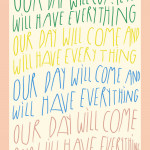 OUR DAY WILL COME AND
WILL HAVE EVERYTHING
OUR DAY WILL COME AND
WILL HAVE EVERYTHING
OUR DAY WILL COME AND
WILL HAVE EVERYTHING
OUR DAY WILL COME
WILL HAVE EVERYTHING